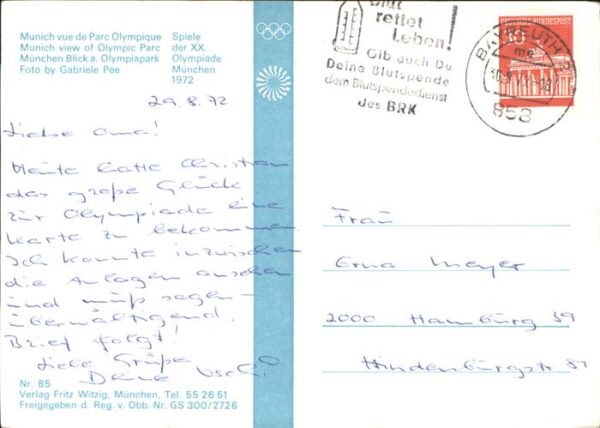 Munich vue de Parc Olympique
Munich view of Olympic Parc
München Blick a. Olympiapark
Foto by Gabriele Pée
Spiele
der XX.
Olympiade
München
1972
29.8.72
Liebe Oma!
Heute hatte Christian
das große Glück
zür Olympiade eine
Karte zu bekommen.
Ich konnte inzwischen
die Anlagen ansehen
und muß sagen –
überwältigend.
Brief folgt!
Liebe Grüße
Deine Uschi
Nr. 85
Verlag Fritz Witzig, München, Tel. 55 26 51
Freigegeben d. Reg. v. Obb. Nr. GS 300/2726
Blut
rettet
Leben!
Gib auch Du
Deine Blutspende
dem Blutspendedienst
des BRK
BAYREUTH 2
me
858
DEUTSCHE BUNDESPOST
30
Frau
Erna Meyer
2000 Hamburg 39
Hindenburgstr 87